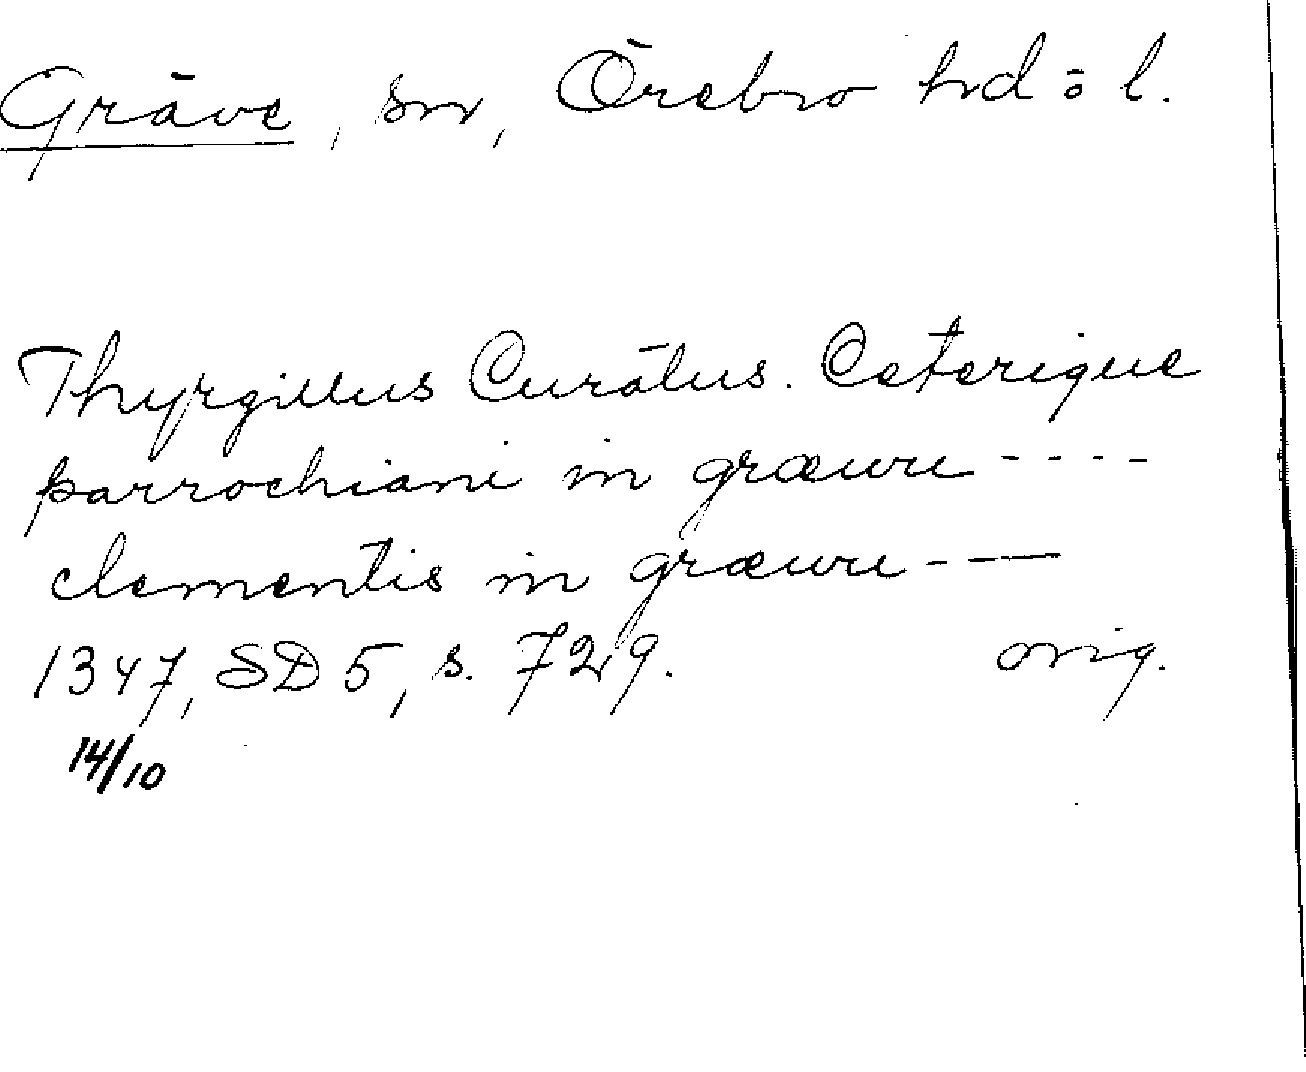 Gräve, sn, Örebro hd o l.
Thyrgillus Curatus. Ceterique
parrochiani in græwu ----
clementis in græwu ---
1347, SD 5, s. 729. orig.
14/10